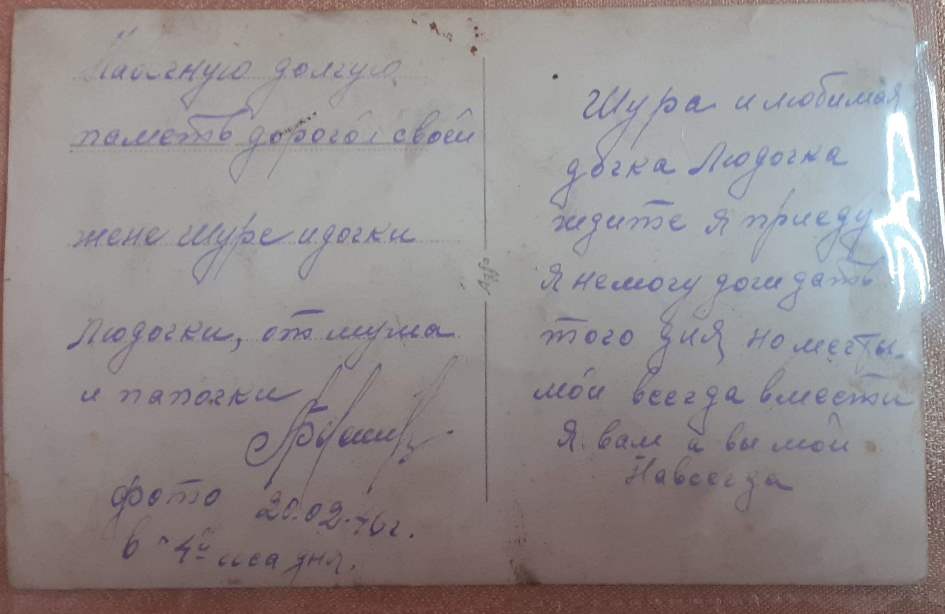 На вечную долгую
паметь дорогой своей
жене Шуре и дочки
Людочки, от мужа
и папочки
фото 20.02.46 г.
в 4 часа дня.
Agfa
Шура и любимая
дочка Людочка
ждите я приеду
я немогу дождать
того дня, но мечты
мои всегда вмести
Я вам а вы мои
Навсегда